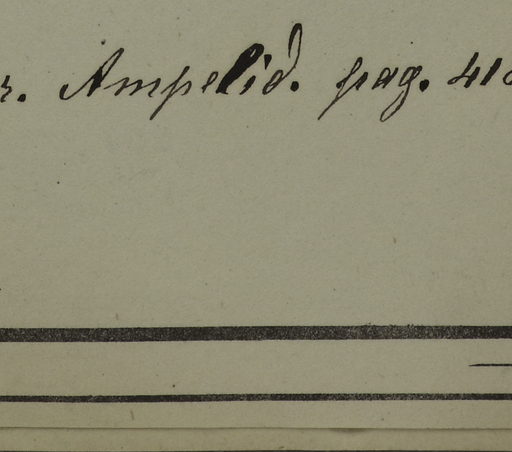 r. Ampelid. pag. 418